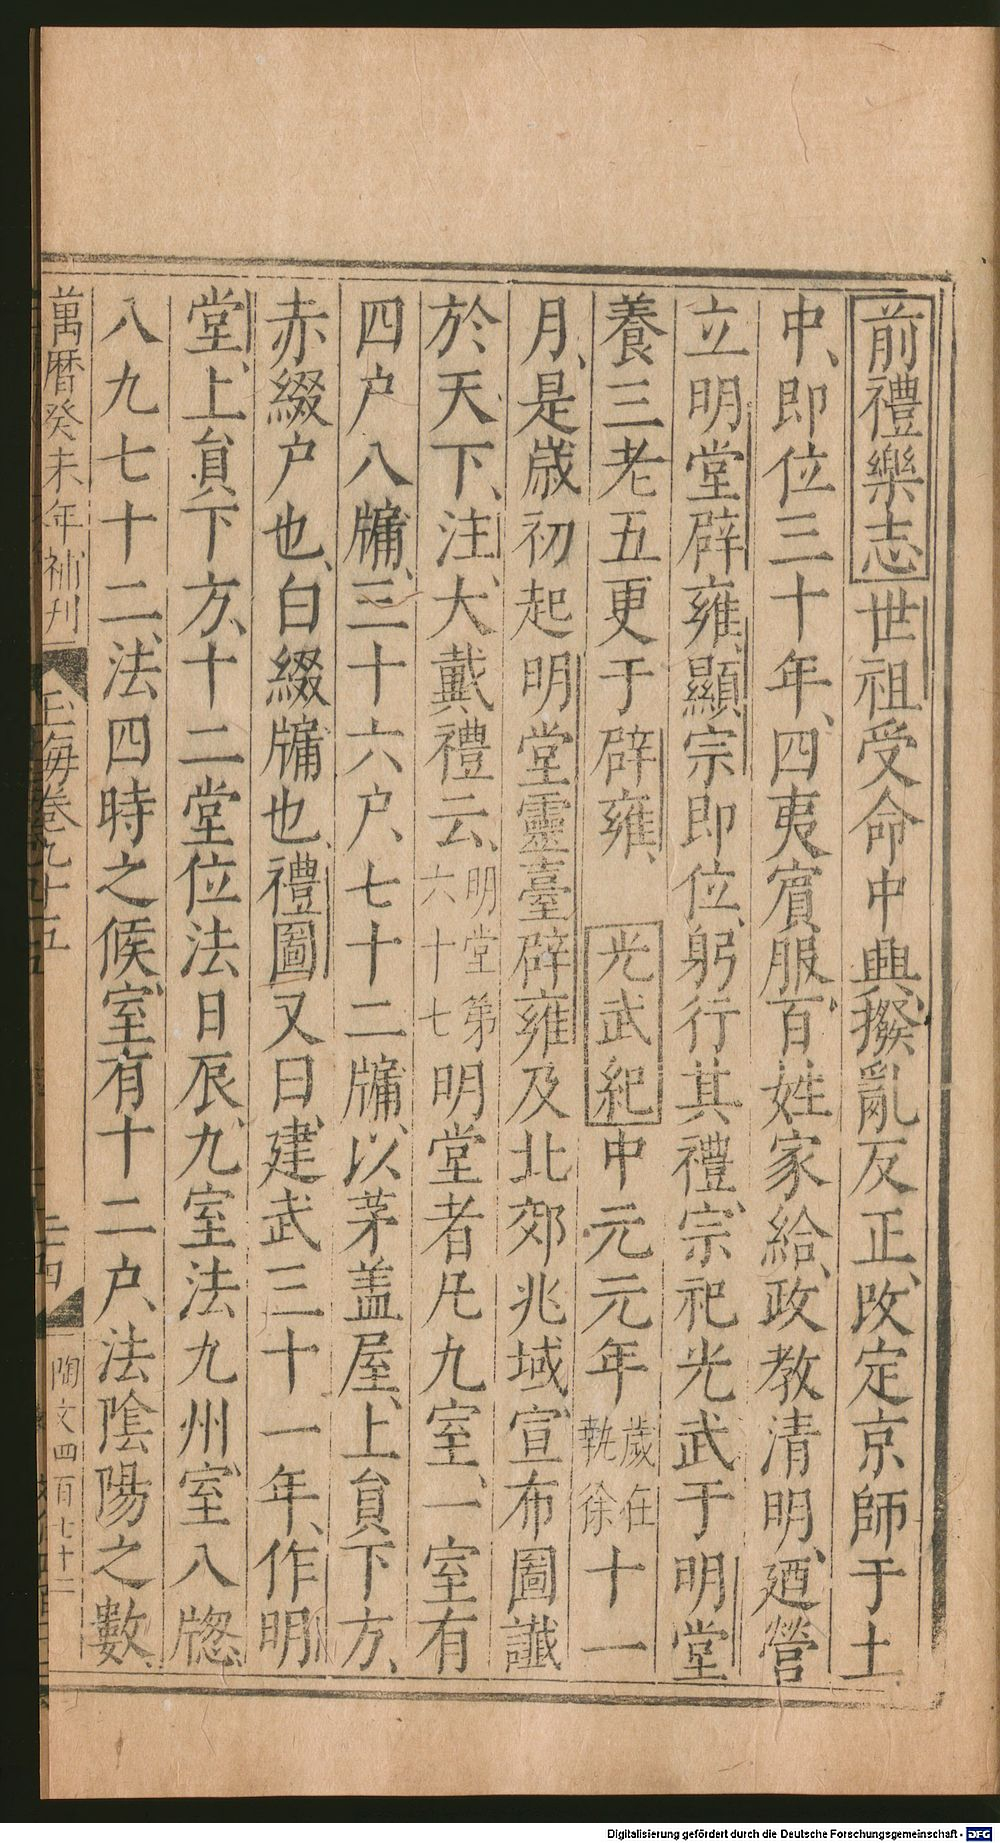 前禮樂志世祖受命中興、撥亂反正、改定京師于土
中、即位三十年、四夷賓服、百姓家給、政教清明、廼營
立明堂辟雍、顯宗即位、躬行其禮、宗祀光武于明堂
養三老五更于辟雍、光武紀中元元年歲在執徐十一
月、是歲初起明堂靈臺辟雍及北郊兆域、宣布圖讖
於天下、注、大戴禮云、明堂第六十七明堂者凡九室、一室有
四户八牖、三十六户、七十二牖、以茅盖屋、上貟下方、
赤綴户也、白綴牖也、禮圖又曰、建武三十一年、作明
堂、上貟下方、十二堂位法日辰、九室法九州、室八牎、
八九七十二、法四時之候、室有十二户、法陰陽之數、
萬曆癸未年補刊
玉海卷九十五
二十四
陶文四百七十二
Digitalisierung gefördert durch die Deutsche Forschungsgemeinschaft - DFG